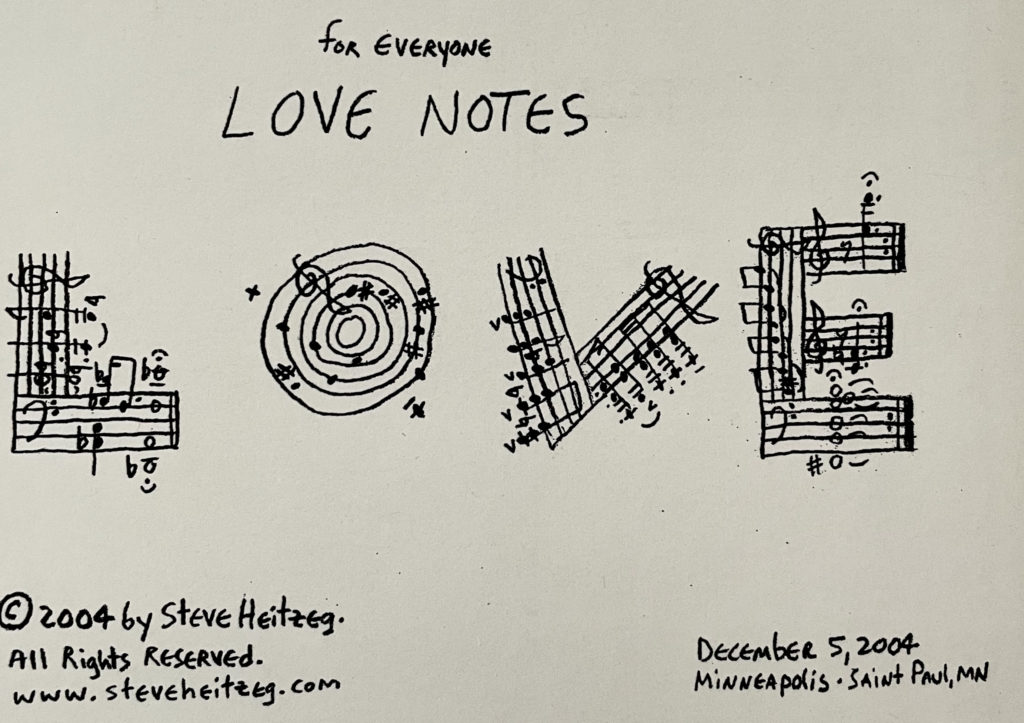 for EVERYONE
LOVE NOTES
LOVE
© 2004 by Steve Heitzeg.
All Rights Reserved.
www.steveheitzeg.com
December 5, 2004
Minneapolis · Saint Paul, MN